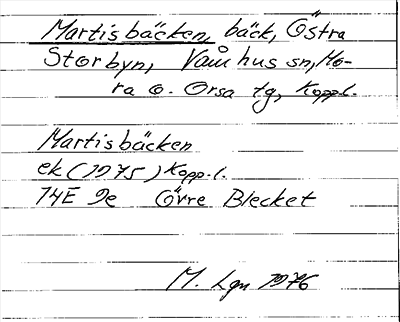 Martisbäcken, bäck, Östra
Storbyn, Våmhus sn, Mo-
ra o. Orsa tg, Kopp.l.
Martisbäcken
ek (1975) Kopp.l.
14E 9e Övre Blecket
M. Lgn 1976